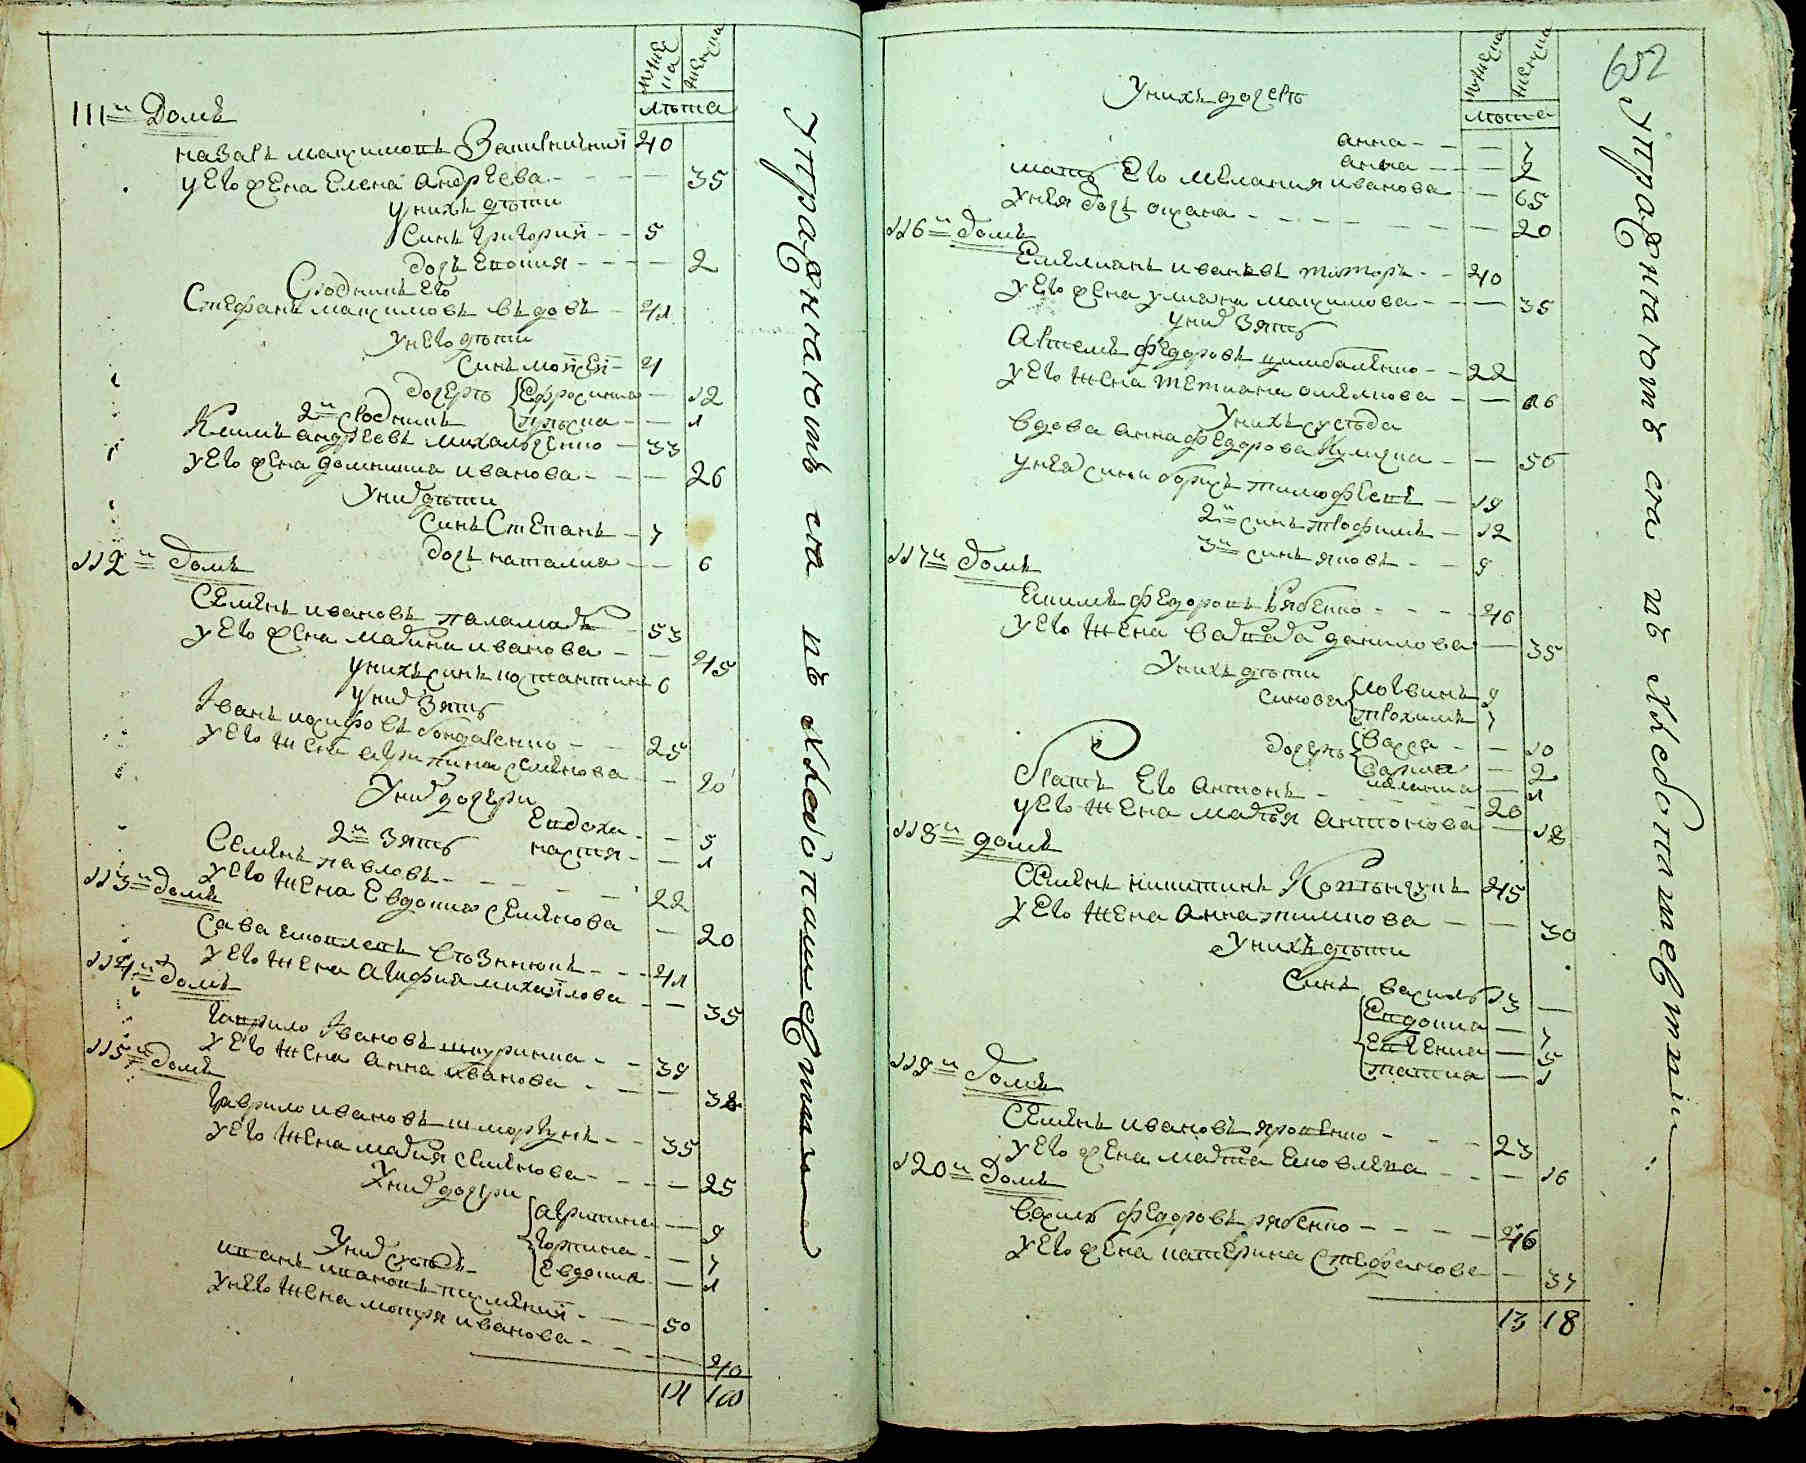 мужеска женска
лѣта
111й Домъ
назаръ максимовъ 40
у его жена Елена Андрѣева 35
у нихъ дѣти
синъ григорий 5
дочь Евдокия 2
Сродникъ его
Стефанъ максимовъ вдовъ 41
у него дѣти
синъ мойсей 4
дочеръ Ефросиниа 12
1
2й сродникъ
Климъ андрѣевъ михальченко 33
у его жена домникиа иванова 26
у них дѣти
синъ Степанъ 7
дочь наталиа 6
112й Домъ
Семенъ ивановъ паламаръ 53
у его жена марина иванова 45
у нихъ синъ константинъ 6
у них зять
Іванъ иосифовъ бондаренко 25
у его жена агрипина семенова 20
у них дочери
Евдоха 5
настя 1
2й зять
Семенъ павловъ 22
у его жена Евдокиа семенова 20
113й Домъ
Сава 41
у его жена Агафия михайлова 35
114й Домъ
гаврило Івановъ шкуринка 39
у его жена анна иванова 38
115й Домъ
гаврило ивановъ шморгунъ 35
у его жена мария семенова 25
у них дочери
агрипина 9
горпина 7
Евдокиа 1
у них сусѣдъ
иванъ ивановъ 50
у него жена мотря иванова 40
11 16
упражнаютъ ся въ хлебопашертви
652
мужеска женска
лѣта
у нихъ дочеръ
анна 7
анна
мать Его мелания иванова 65
у нея дочь оксана 20
116й Домъ
Емелианъ ивановъ титоръ 40
у его жена улиана максимова 35
у них зять
Артемъ федоровъ цимбаленко 22
у его жена тетиана омелкова 16
у нихъ сусѣда
вдова анна федорова кулиска 56
у нея синъ борисъ тимофѣевъ 19
2й синъ трофимъ 12
3й синъ яковъ 9
117й Домъ
Екимъ федоровъ рябенко 46
у его жена варвара данилова 35
у нихъ дѣти
синовя логвинъ 9
трохимъ 7
дочеръ васса 10
варка 2
1
братъ его антонъ 20
у его жена марья антонова 18
118й домъ
семенъ никитинъ 45
у его жена анна климова 30
у нихъ дѣти
синъ василь 13
Евдокиа 7
Евгениа 5
татиа 1
119й Домъ
семенъ ивановъ ярошенко 23
у его жена марта яковлева 16
120й Домъ
василь федоровъ рябенко 46
у его жена катерина стефанова 37
13 18
упражнаютъ ся въ хлебопашертви